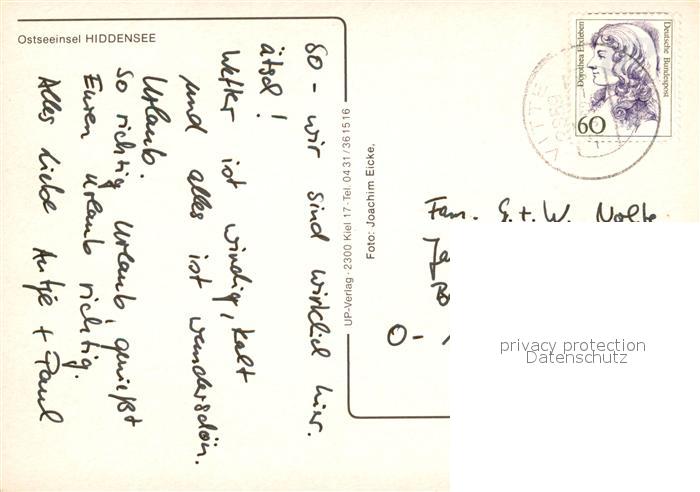 Ostseeinsel HIDDENSEE
So - wir sind wirklich hier.
ätsch!
Wetter ist windig, kalt
und alles ist wunderschön.
Urlaub.
So richtig Urlaub, genießt
Euren Urlaub richtig.
Alles Liebe Antje + Paul
UP-Verlag · 2300 Kiel 17 · Tel. 0431/361516
Foto: Joachim Eicke,
Dorothea Erxleben
Deutsche Bundespost
60
VITTE
Fam. E. + W. Nolte
O -
privacy protection
Datenschutz